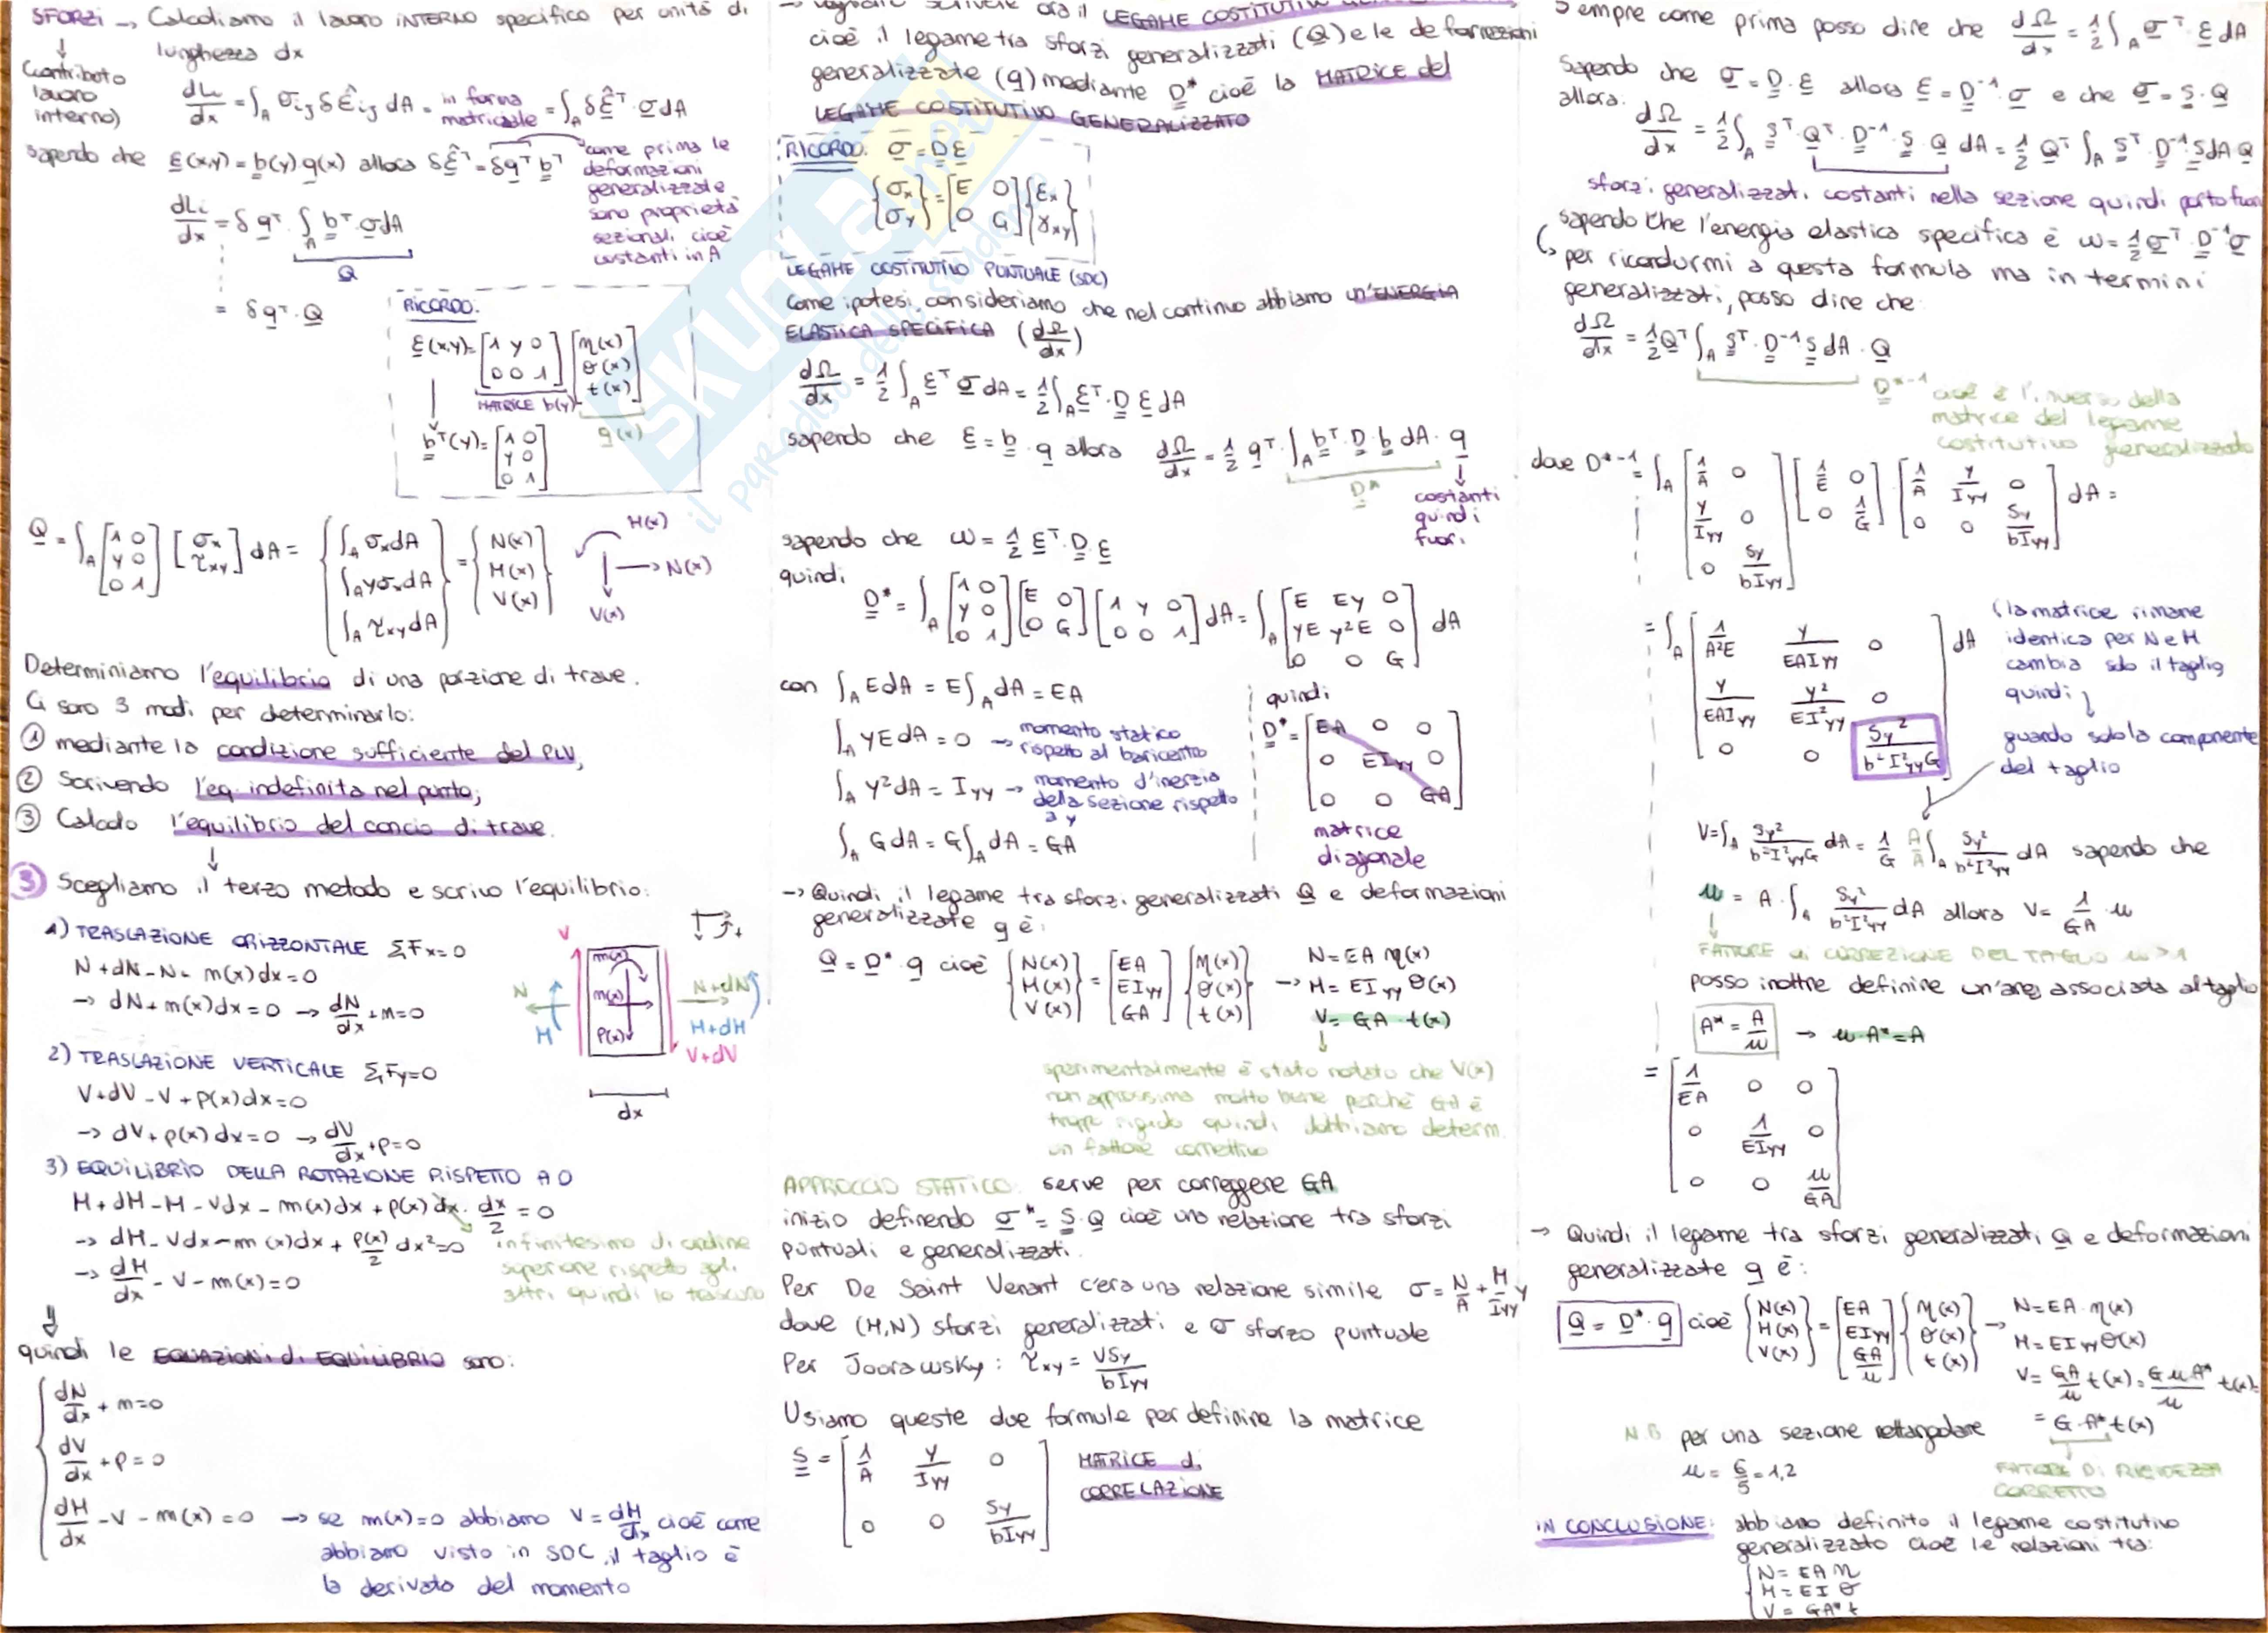 SFORZI → Calcoliamo il lavoro INTERNO specifico per unità di
↓ lunghezza dx
(contributo
lavoro
interno)
dLi/dx = ∫A σij δε̂ij dA = in forma matriciale = ∫A δε̂ᵀ · σ dA
sapendo che ε(x,y) = b(y) q(x) allora δε̂ᵀ = δqᵀ bᵀ
come prima le
deformazioni
generalizzate
sono proprietà
sezionali cioè
costanti in A
dLi/dx = δqᵀ · ∫A bᵀ · σ dA
Q
= δqᵀ · Q
RICORDO:
ε(x,y) = [1 y 0; 0 0 1] [η(x); θ(x); t(x)]
MATRICE b(y) q(x)
bᵀ(y) = [1 0; y 0; 0 1]
Q = ∫A [1 0; y 0; 0 1] [σx; τxy] dA = {∫A σx dA; ∫A yσx dA; ∫A τxy dA} = {N(x); M(x); V(x)}
M(x)
→ N(x)
V(x)
Determiniamo l'equilibrio di una porzione di trave.
Ci sono 3 modi per determinarlo:
① mediante la condizione sufficiente del PLV,
② Scrivendo l'eq. indefinita nel punto;
③ Calcolo l'equilibrio del concio di trave.
↓
③ Scegliamo il terzo metodo e scrivo l'equilibrio:
1) TRASLAZIONE ORIZZONTALE ΣFx=0
N + dN - N + m(x)dx = 0
→ dN + m(x)dx = 0 → dN/dx + m = 0
2) TRASLAZIONE VERTICALE ΣFy=0
V + dV - V + p(x)dx = 0
→ dV + p(x)dx = 0 → dV/dx + p = 0
V
m(x)
N
m(x)
N+dN
M
p(x)
M+dM
V+dV
dx
3) EQUILIBRIO DELLA ROTAZIONE RISPETTO A O
M + dM - M - Vdx - m(x)dx + p(x)dx · dx/2 = 0
→ dM - Vdx - m(x)dx + p(x)/2 dx² = 0
infinitesimo di ordine
superiore rispetto agli
altri quindi lo trascuro
→ dM/dx - V - m(x) = 0
⇓
quindi le EQUAZIONI di EQUILIBRIO sono:
dN/dx + m = 0
dV/dx + p = 0
dM/dx - V - m(x) = 0 → se m(x)=0 abbiamo V = dM/dx cioè come
abbiamo visto in SDC, il taglio è
la derivata del momento
scrivere ora il LEGAME COSTITUTIVO
cioè il legame tra sforzi generalizzati (Q) e le deformazioni
generalizzate (q) mediante D* cioè la MATRICE del
LEGAME COSTITUTIVO GENERALIZZATO
RICORDO: σ = D ε
{σx; σy} = [E 0; 0 G] {εx; γxy}
LEGAME COSTITUTIVO PUNTUALE (SDC)
Come ipotesi consideriamo che nel continuo abbiamo un'ENERGIA
ELASTICA SPECIFICA (dΩ/dx)
dΩ/dx = 1/2 ∫A εᵀ σ dA = 1/2 ∫A εᵀ · D ε dA
sapendo che ε = b · q allora dΩ/dx = 1/2 qᵀ · ∫A bᵀ · D · b dA · q
D*
costanti
quindi
fuori
sapendo che ω = 1/2 εᵀ · D · ε
quindi
D* = ∫A [1 0; y 0; 0 1] [E 0; 0 G] [1 y 0; 0 0 1] dA = ∫A [E Ey 0; yE y²E 0; 0 0 G] dA
con ∫A E dA = E ∫A dA = EA
∫A yE dA = 0 → momento statico
rispetto al baricentro
∫A y² dA = Iyy → momento d'inerzia
della sezione rispetto
a y
∫A G dA = G ∫A dA = GA
quindi
D* = [EA 0 0; 0 EIyy 0; 0 0 GA]
matrice
diagonale
→ Quindi il legame tra sforzi generalizzati Q e deformazioni
generalizzate q è:
Q = D* · q cioè {N(x); M(x); V(x)} = [EA; EIyy; GA] {η(x); θ(x); t(x)} → N = EA η(x)
M = EIyy θ(x)
V = GA · t(x)
↓
sperimentalmente è stato notato che V(x)
non approssima molto bene perché GA è
troppo rigido quindi dobbiamo determ.
un fattore correttivo
APPROCCIO STATICO: serve per correggere GA
inizio definendo σ* = S · Q cioè una relazione tra sforzi
puntuali e generalizzati.
Per De Saint Venant c'era una relazione simile σ = N/A + M/Iyy y
dove (M,N) sforzi generalizzati e σ sforzo puntuale
Per Joorawsky: τxy = VSy/bIyy
Usiamo queste due formule per definire la matrice
S = [1/A y/Iyy 0; 0 0 Sy/bIyy]
MATRICE di
CORRELAZIONE
Sempre come prima posso dire che dΩ/dx = 1/2 ∫A σᵀ · ε dA
Sapendo che σ = D · ε allora ε = D⁻¹ · σ e che σ = S · Q
allora.
dΩ/dx = 1/2 ∫A Sᵀ · Qᵀ · D⁻¹ · S · Q dA = 1/2 Qᵀ ∫A Sᵀ · D⁻¹ · S dA Q
sforzi generalizzati costanti nella sezione quindi porto fuori
sapendo che l'energia elastica specifica è ω = 1/2 σᵀ · D⁻¹ σ
per ricondurmi a questa formula ma in termini
generalizzati, posso dire che:
dΩ/dx = 1/2 Qᵀ ∫A Sᵀ · D⁻¹ S dA · Q
D*⁻¹ cioè è l'inverso della
matrice del legame
costitutivo generalizzato
dove D*⁻¹ = ∫A [1/A 0; y/Iyy 0; 0 Sy/bIyy] [1/E 0; 0 1/G] · [1/A y/Iyy 0; 0 0 Sy/bIyy] dA =
= ∫A [1/A²E y/EAIyy 0; y/EAIyy y²/EI²yy 0; 0 0 Sy²/b²I²yyG] dA
(la matrice rimane
identica per N e M
cambia solo il taglio
quindi)
↓
guardo solo la componente
del taglio
V = ∫A Sy²/b²I²yyG dA = 1/G A/A ∫A Sy²/b²I²yy dA sapendo che
μ = A · ∫A Sy²/b²I²yy dA allora V = 1/GA · μ
↓
FATTORE di CORREZIONE DEL TAGLIO μ>1
posso inoltre definire un'area associata al taglio
A* = A/μ → μ·A* = A
= [1/EA 0 0; 0 1/EIyy 0; 0 0 μ/GA]
→ Quindi il legame tra sforzi generalizzati Q e deformazioni
generalizzate q è:
Q = D* · q cioè {N(x); M(x); V(x)} = [EA; EIyy; GA/μ] {η(x); θ(x); t(x)} → N = EA · η(x)
M = EIyy θ(x)
V = GA/μ t(x) = GμA*/μ t(x) =
= G · A* t(x)
FATTORE DI RIGIDEZZA
CORRETTO
N.B. per una sezione rettangolare
μ = 6/5 = 1,2
IN CONCLUSIONE: abbiamo definito il legame costitutivo
generalizzato cioè le relazioni tra:
N = EA η
M = EI θ
V = GA* t
SKUOLA.net
il paradiso dello studente